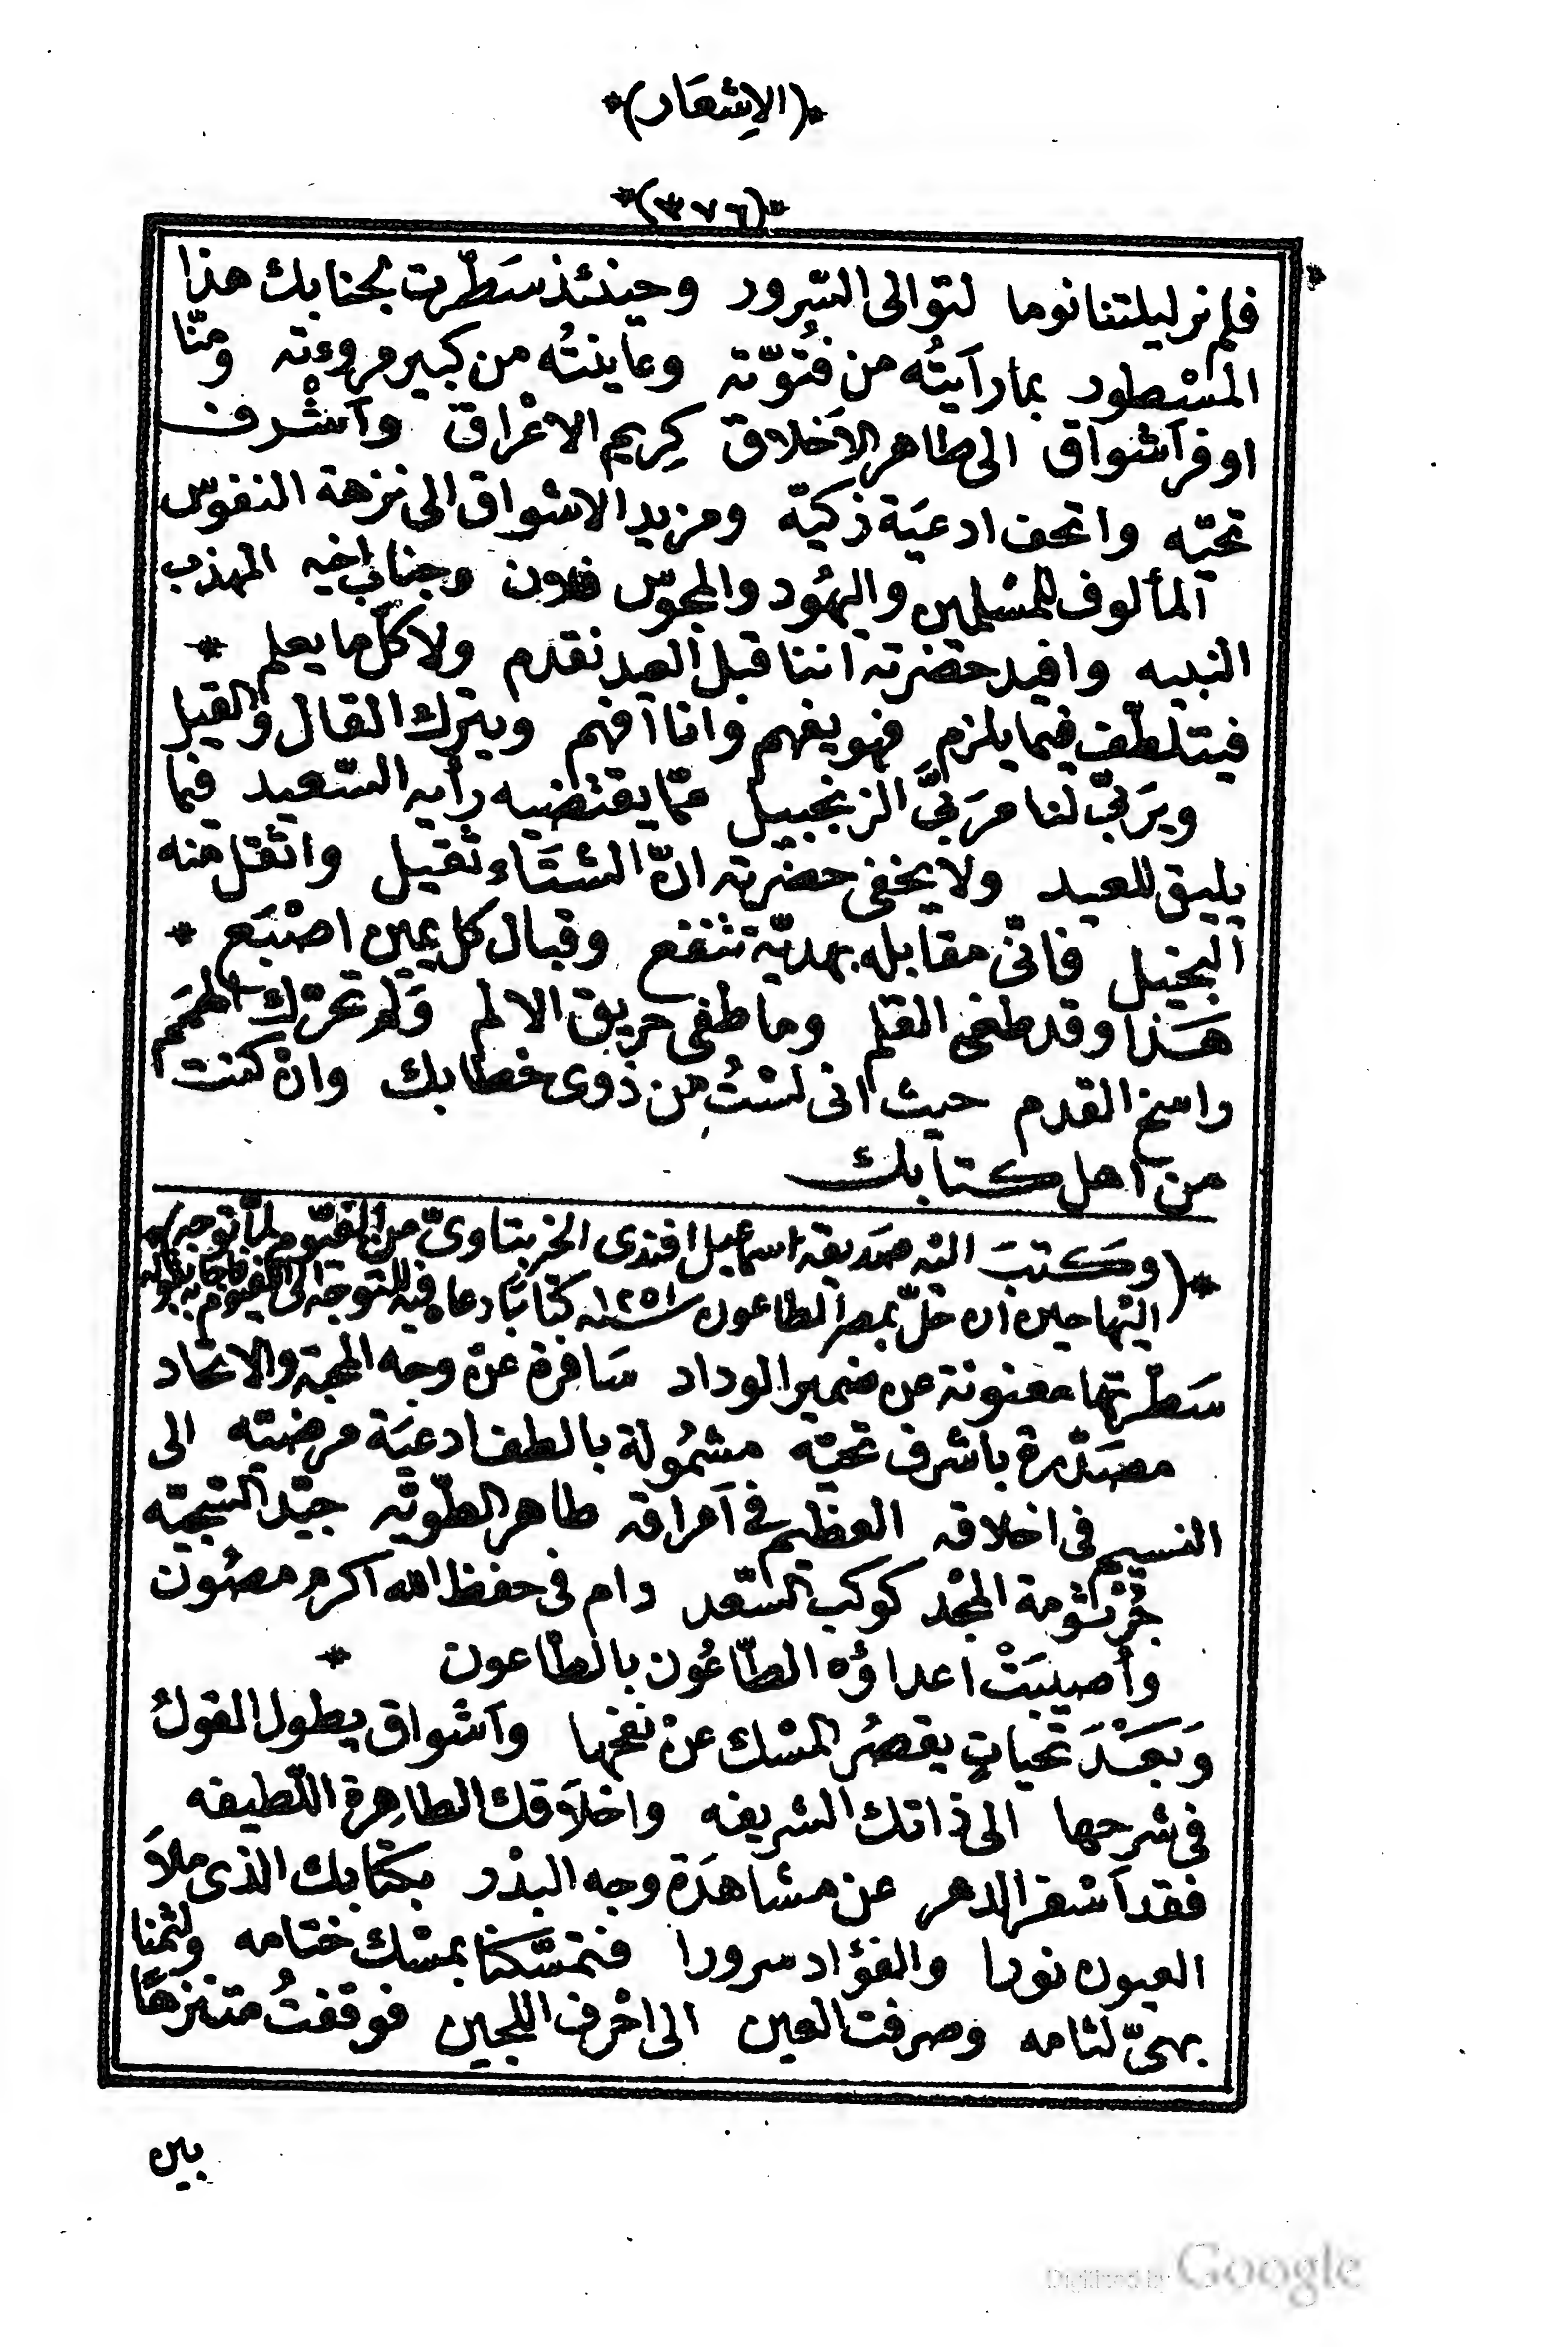 *(الإشعار)*
*(٣٧٦)*
فلم نر ليلتنا نوما لتوالى السّرور وحينئذ سَطّرت لجنابك هذا
المسْطور بما رأيتُه من فُتوّته وعاينتُه من كبير مروءته ومنّا
اوفر آشواق الى طاهر الاَخلاق كِريم الاعْراق واَشْرف
تحيّه واتحف ادعيَة ذكيّة ومزيد الاشواق الى نزهة النفوس
المألوف للمسْلمين واليهُود والمجوس فلان وجناب اخيه المهذب
النبيه وافيد حضرته اننا قبل العيد نقدم ولا كلّ ما يعلم *
فيتلطّف فيما يلزم فهو يفهم وانا افهم ويترك القال والقيل
ويرَبّى لنا مرَبَّى الزنجبيل ممّا يقتضيه رأيه السّعيد فيما
يليق للعيد ولا يخفى حضرته انّ الشتَاء ثقيل واثقل منه
البخيل فانّى مقابله بهديّة تنفع وقبال كل يمين اصْبَع *
هَذا وقد طغى القلم وما طفى حريق الالم وَلم تحرّك الهمَم
راسخ القدم حيث انى لسْتُ من ذوى خطابك وان كنت
من اهل كتابك
*(وكتبَ اليْه صَديقه اسماعيل افندى الخربتاوىّ من الفيّوم لمّا توجه
اليها حين ان حَلّ بمصر الطاعون سنة ١٢٥١ كتابًا دعاه فيه للتوجّه الى الفيّوم فاجابه بقوله)*
سَطّرتها معنونة عن ضمير الوداد سَافرة عنْ وجه المحبّة والاتحاد
مصَدّرة باشرف تحيّه مشمُولة بالطف ادعيَة مرضيّه الى
النسيم فى اخلاقه العظيم فى آعراقه طاهر الطّويّه جيّد السّجيّه
جُرْثُومة المجْد كوكب السّعد دام فى حفظ الله اكرم مصُون
وأصيبَتْ اعداؤه الطّاعُون بالطّاعون *
وَبَعَدَ تحياتٍ يقصُر المسْك عنْ نفخها وآشواق يطول القولُ
فى شرحها الى ذاتك الشريفه واخلاَقك الطاهِرة اللّطيفه
فقد آسْفر الدهر عن مشاهدَة وجه البدْر بكتابك الذى ملاَ
العيون نورا والفؤاد سرورا فتمسّكنا بمسْك ختامه ولثمْنا
بهىّ لثامه وصرفت العين الى اخْرف اللجين فوقفتُ متنزهًا
بين
Digitized by Google